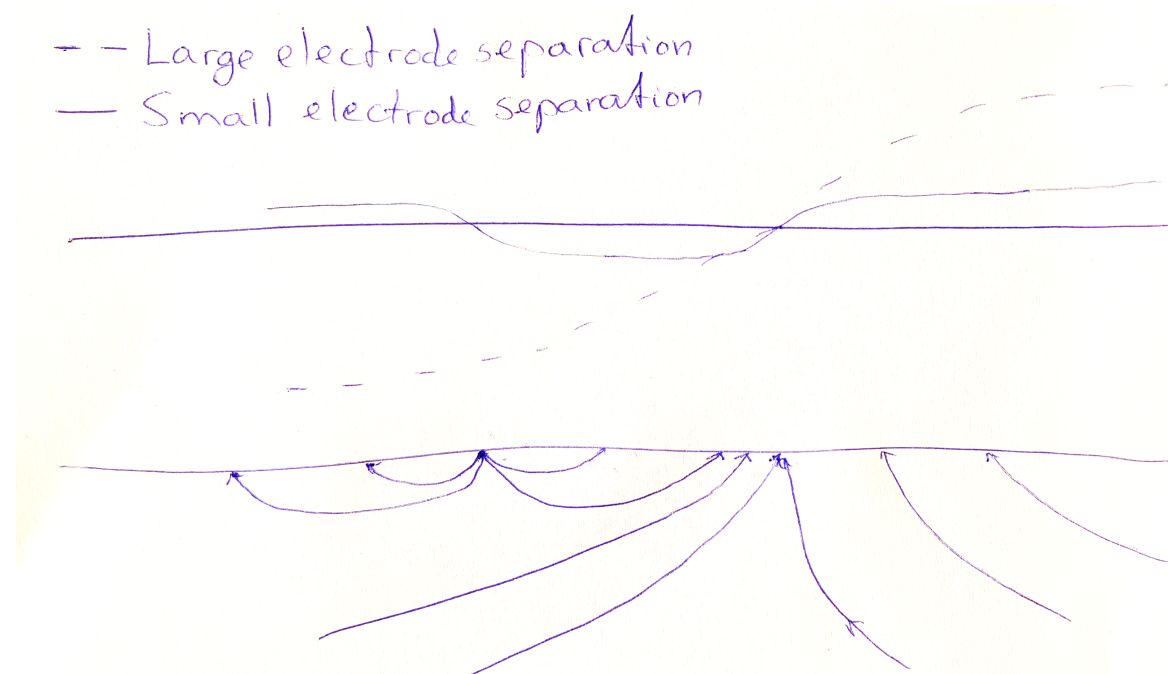 -- Large electrode separation
— Small electrode separation